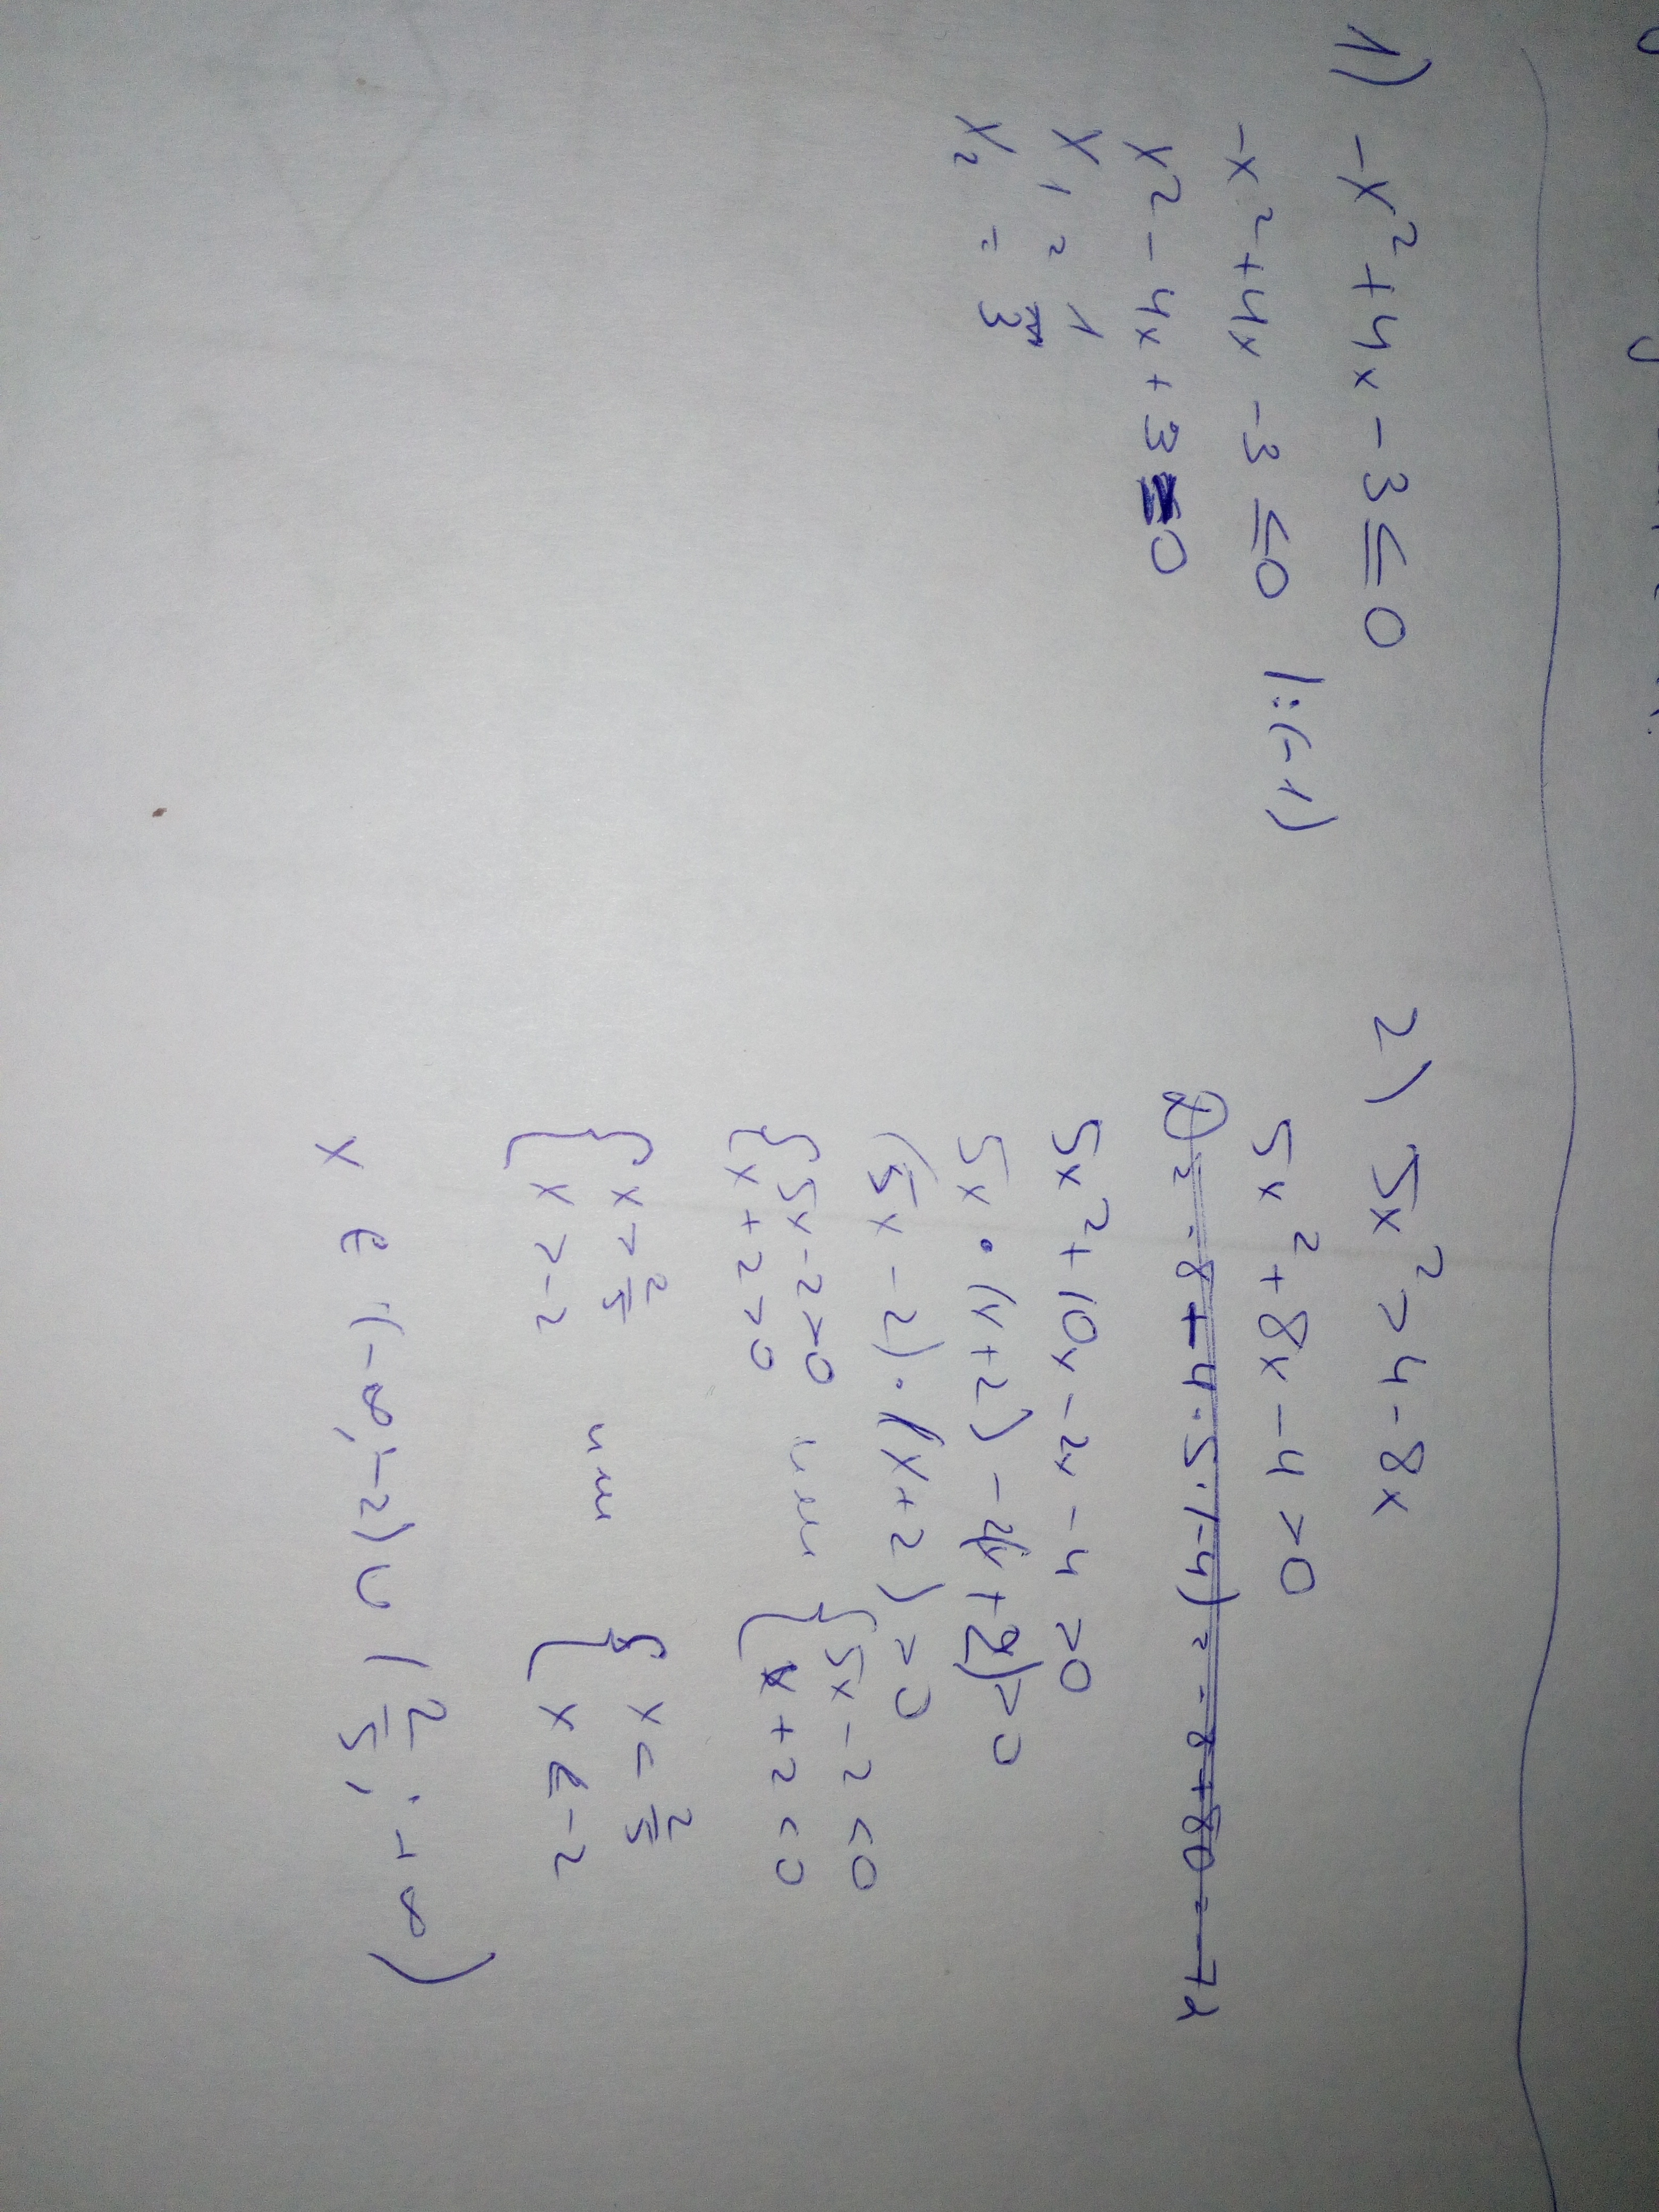 1) -x² + 4x - 3 ≤ 0
-x² + 4x - 3 ≤ 0 |:(-1)
x² - 4x + 3 = 0
x₁ = 1
x₂ = 3
2) 5x² > 4 - 8x
5x² + 8x - 4 > 0
D = -8 + 4·5·(-4) = -8 + 80 = -72
5x² + 10x - 2x - 4 > 0
5x · (x+2) - 2(x+2) > 0
(5x - 2) · (x+2) > 0
{ 5x - 2 > 0 { 5x - 2 < 0
{ x + 2 > 0 { x + 2 < 0
{ x > 2/5 { x < 2/5
{ x > -2 { x < -2
x ∈ (-∞; -2) ∪ (2/5; +∞)